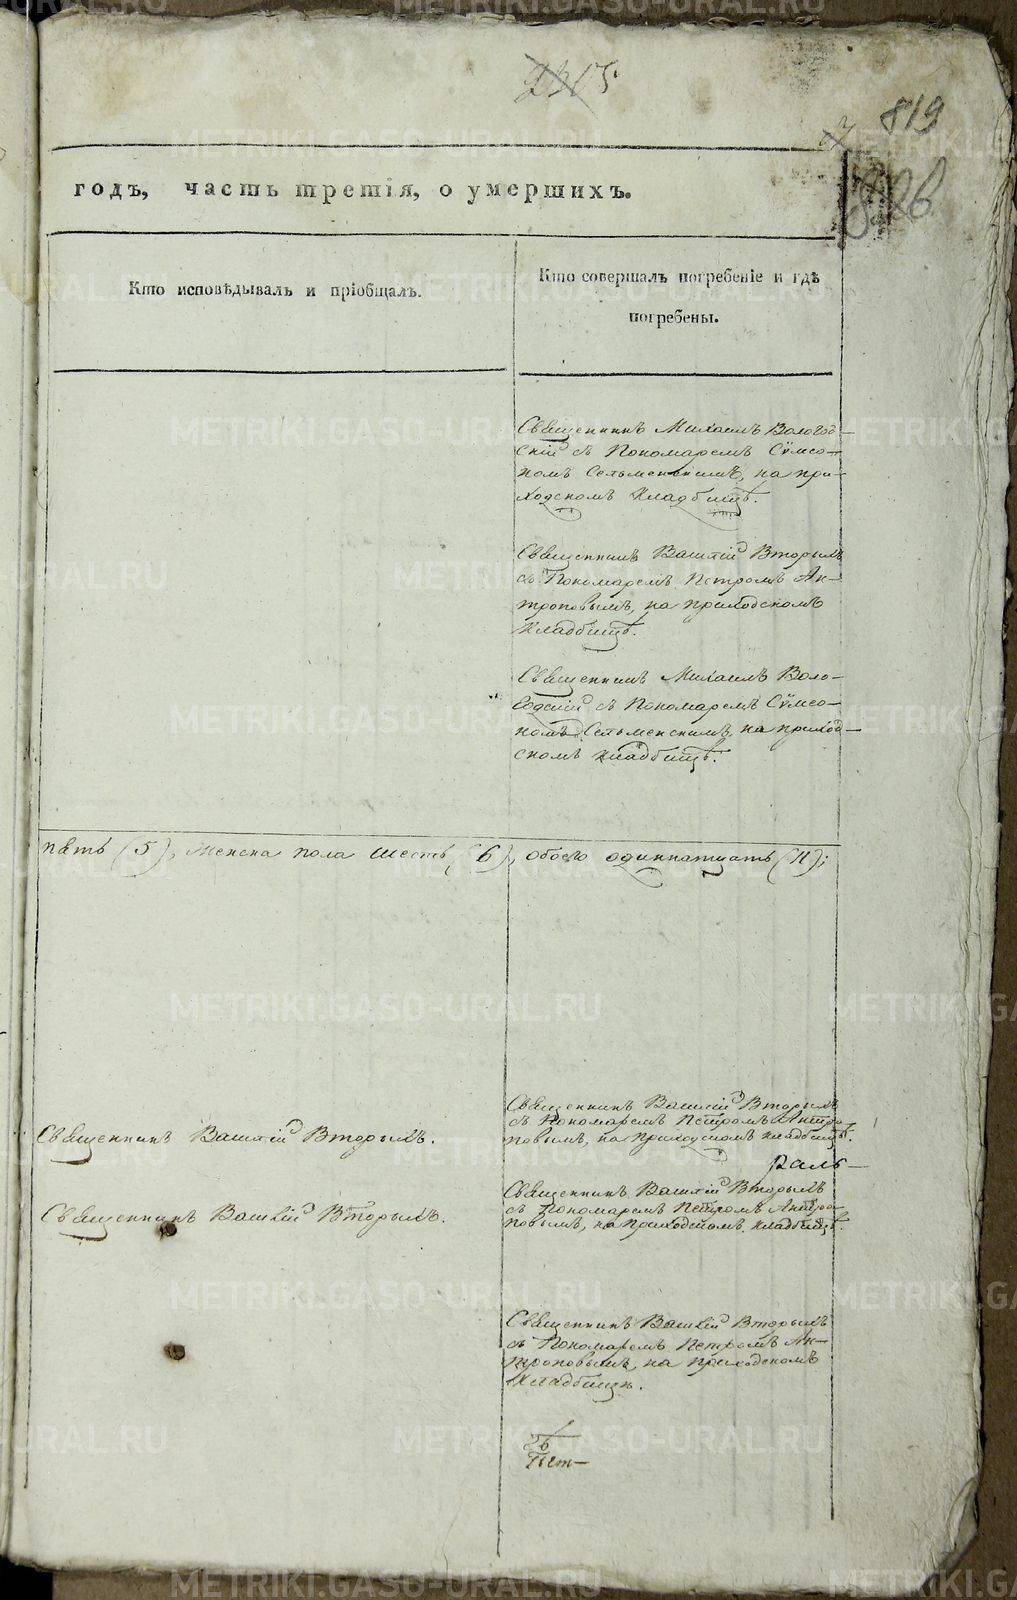 819
годъ, часть третія, о умершихъ.
Кто исповѣдывалъ и пріобщалъ.
Кто совершалъ погребеніе и гдѣ
погребены.
Священникъ Михаилъ Вологод-
скій съ Пономаремъ Сѵмео-
номъ Сельменскимъ, на при-
ходскомъ Кладбищѣ.
Священникъ Василій Вторымъ
съ Пономаремъ Петромъ Ан-
троповымъ, на приходскомъ
Кладбищѣ.
Священникъ Михаилъ Воло-
годскій съ Пономаремъ Сѵмео-
номъ Сельменскимъ, на приход-
скомъ кладбищѣ.
пять (5), женска пола шесть (6), обоего одиннатцать (11);
Священникъ Василій Вторымъ
съ Пономаремъ Петромъ Антро-
повымъ, на приходскомъ кладбищѣ.
Священникъ Василій Вторымъ.
раль-
Священникъ Василій Вторымъ
съ Пономаремъ Петромъ Антро-
повымъ, на приходскомъ кладбищѣ.
Священникъ Василій Вторымъ.
Священникъ Василій Вторымъ
съ Пономаремъ Петромъ Ан-
троповымъ, на приходскомъ
Кладбищѣ.
METRIKI.GASO-URAL.RU